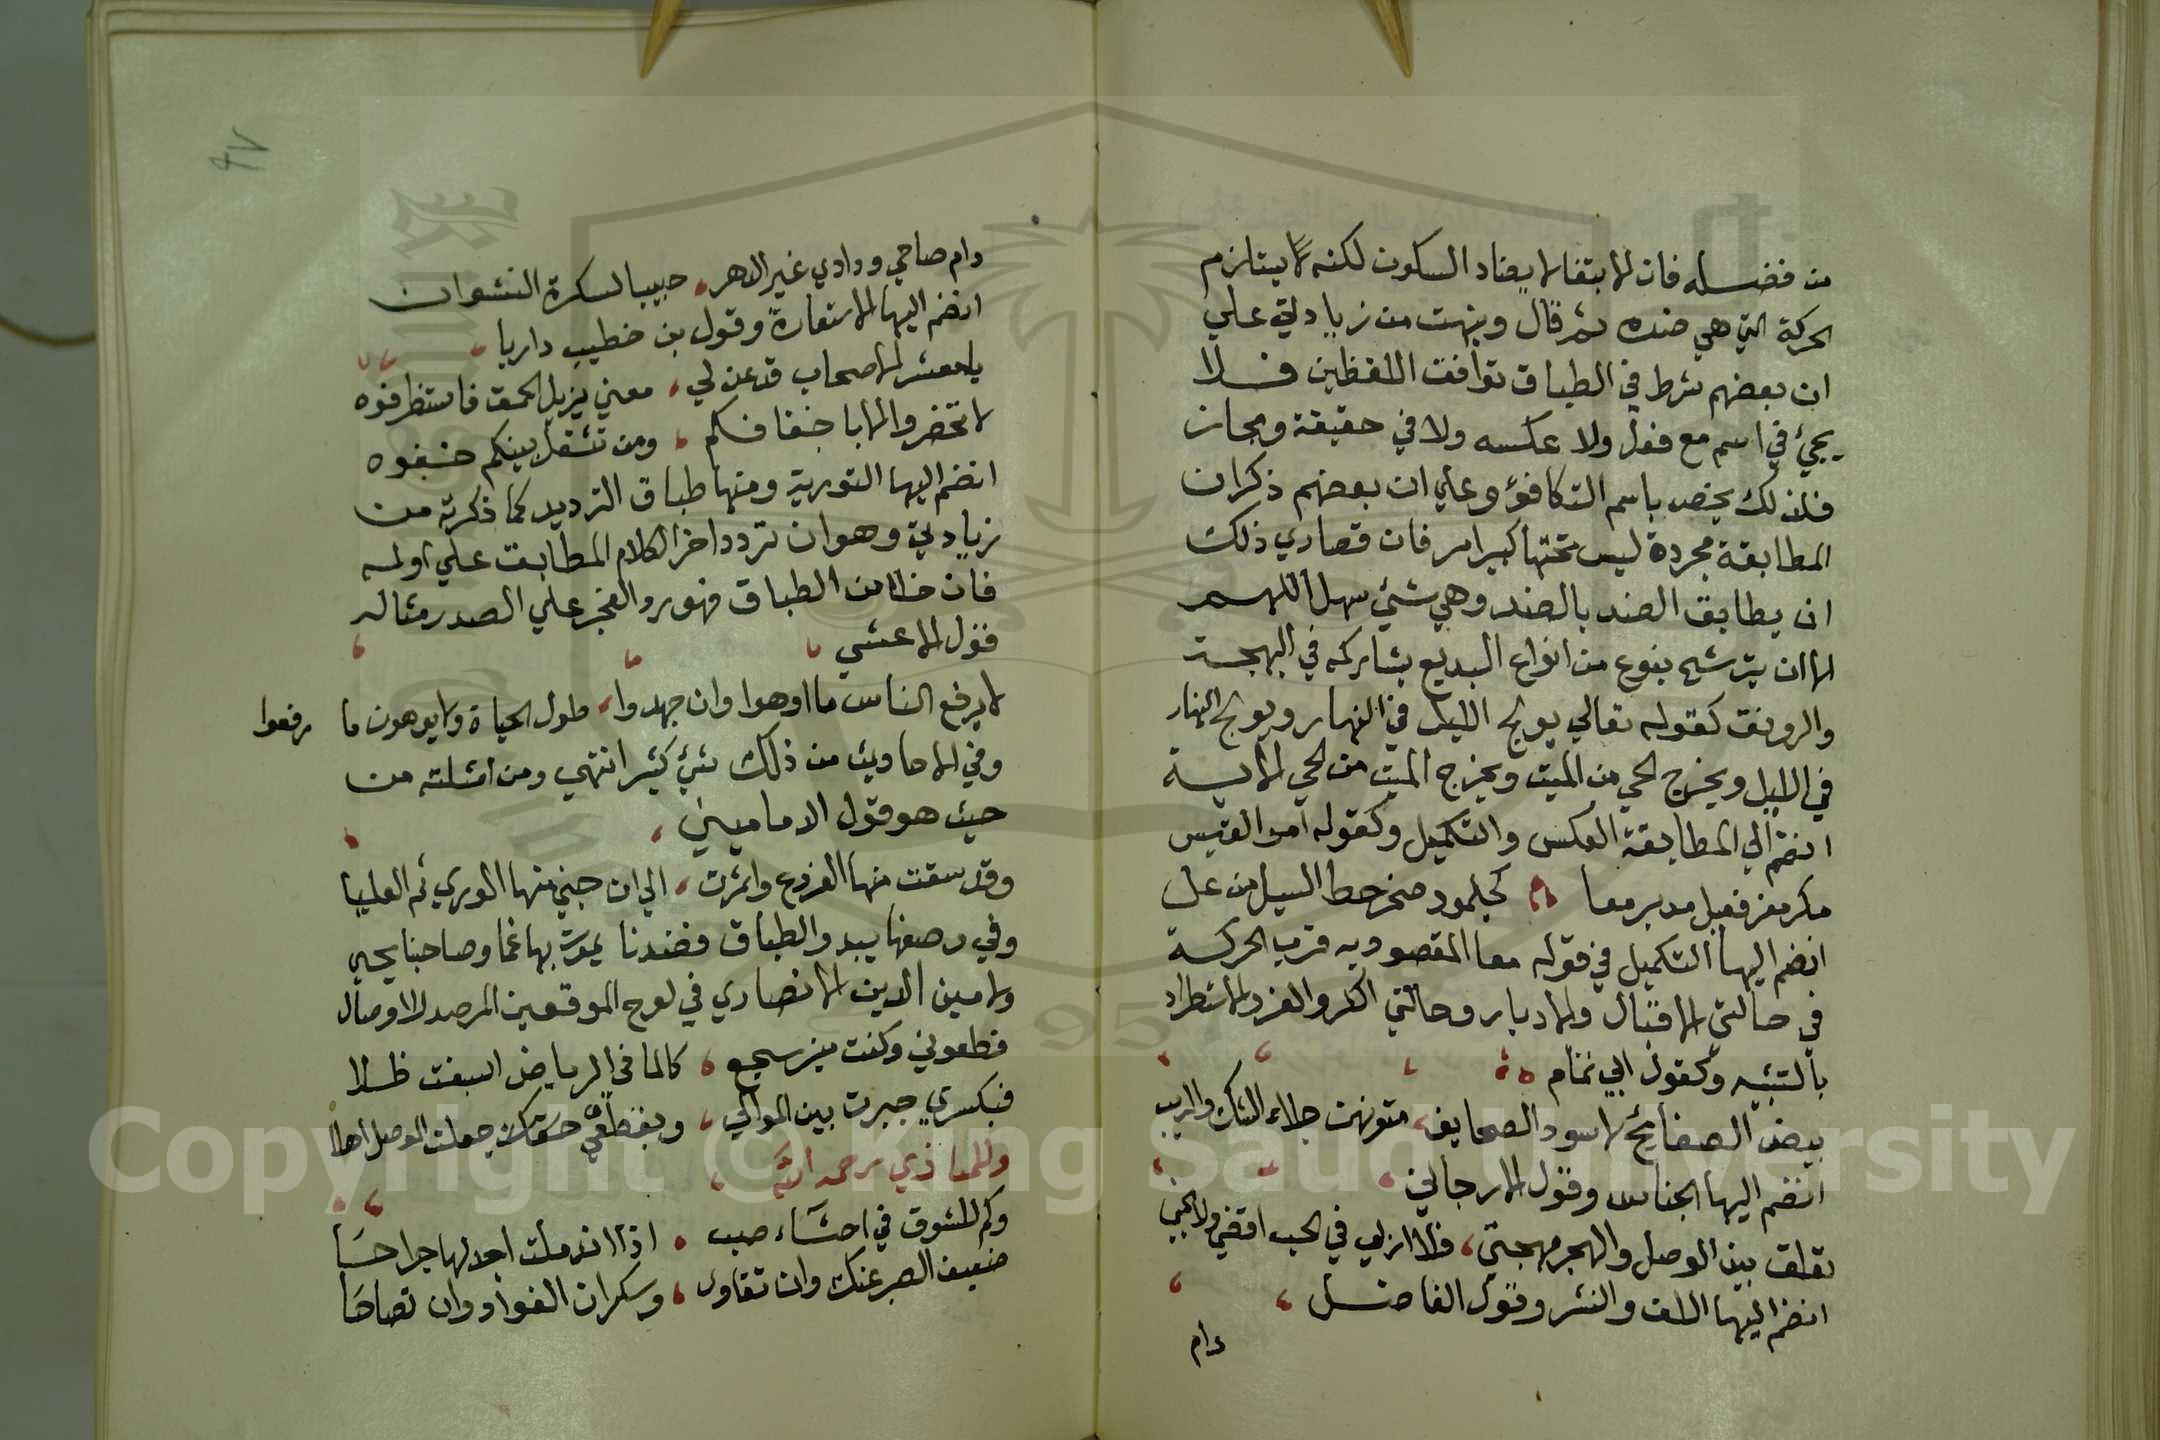 من فضله فان الابتغا لا يضاد السكون لكنه لا يستلزم
الحركة التي هي ضده ثم قال ونبهت من زيادتي علي
ان بعضهم شرط في الطباق توافق اللفظين فلا
يجئ في اسم مع فعل ولا عكسه ولا في حقيقة ومجاز
فلذلك يخص باسم التكافؤ وعلي ان بعضهم ذكر ان
المطابقة مجردة ليس تحتها كبير امر فان قصاري ذلك
ان يطابق الضد بالضد وهي شئ سهل اللهم
الا ان يترشح بنوع من انواع البديع يشاركه في البهجة
والرونق كقوله تعالي يولج الليل في النهار ويولج النهار
في الليل ويخرج الحي من الميت ويخرج الميت من الحي الاية
انضم الي المطابقة العكس والتكميل وكقوله امر القيس
مكر مفر مقبل مدبر معا كجلمود صخر حط السيل من عل
انضم اليها التكميل في قوله معا المقصود به قرب الحركة
في حالتي الاقبال والادبار وحالتي الكر والفر والاستطراد
بالتشبيه وكقول ابي تمام
بيض الصفائح لا سود الصحايف متونهن جلاء الشك والريب
انضم اليها الجناس وقول الارجاني
تعلق بين الوصل والهجر مهجتي فلا ارلي في الحب اقضي ولا نحبي
انضم اليها اللف والنشر وقول الفاضل
دام
٩٧
دام صاحي ودادي غير الدهر حبيبا لسكرة النشوان
انضم اليها الاستعارة وقول بن خطيب داريا
يا معشر الاصحاب قد عن لي معني يزيل الحمق فاستظرفوه
لا تحضروا الا باخفافكم ومن تثقل بينكم خففوه
انضم اليها التورية ومنها طباق الترديد كما ذكرته من
زيادتي وهو ان تردد اخر الكلام المطابق علي اوله
فان خلا من الطباق فهو رد العجز علي الصدر مثاله
قول الاعشي
لا يرفع الناس ما اوهوا وان جهدوا طول الحياة ولا يوهون ما رفعوا
وفي الاحاديث من ذلك شئ كثير انتهي ومن امثلته من
حيث هو قول الدماميني
وقد سقت منها الفروع واثمرت الي ان جني منها الوري ثم العليا
وفي وصفها يبدو الطباق فضدنا يموت بها غما وصاحبنا يحيي
ولامين الدين الانصاري في لوح الموقعين المرصد لاوصال
قطعوني وكنت سجع كالما في الرياض اسبغت ظلا
فبكسري جبرت بين الموالي وبقطعي جعلت الوصل اهلا
وللما ذي رحمه الله
وكم للشوق في احشاء صب اذا اندملت اجد لها جراحا
ضعيف الصبر عنك وان تقاوي وسكران الفواد وان تصاحا